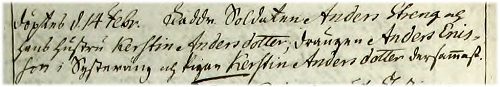 döptes d. 14 Febr. Faddr. Soldaten Anders Streng och
hans hustru Kerstin Anders dotter, Drängen Anders Eriks-
son i Systeräng och pigan Kerstin Anders dotter dersammast.